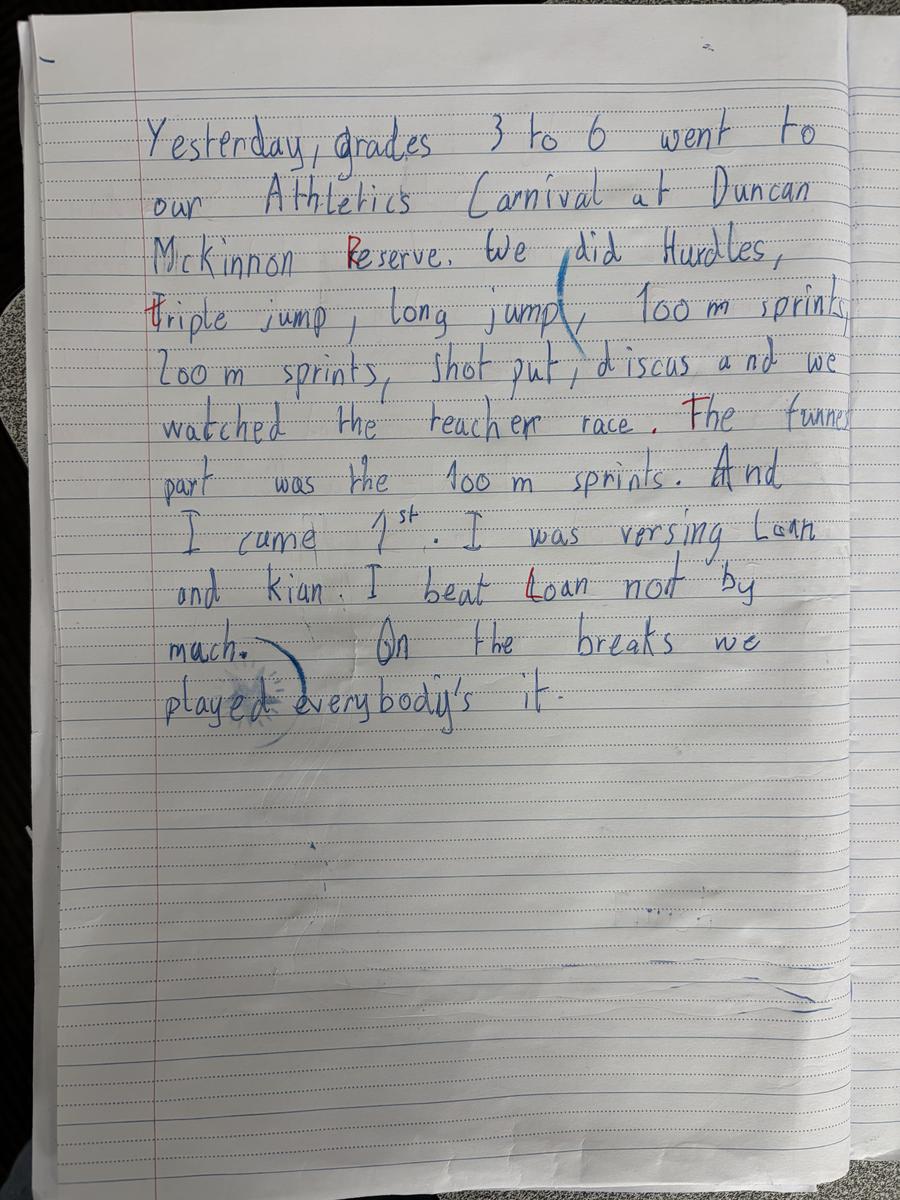 Yesterday, grades 3 to 6 went to
our Athletics Carnival at Duncan
Mckinnon Reserve. We did Hurdles,
triple jump, long jump, 100 m sprints,
200 m sprints, shot put, discus and we
watched the teacher race. The funnest
part was the 100 m sprints. And
I came 1st. I was versing Loan
and kian. I beat Loan not by
much. On the breaks we
played everybody's it.